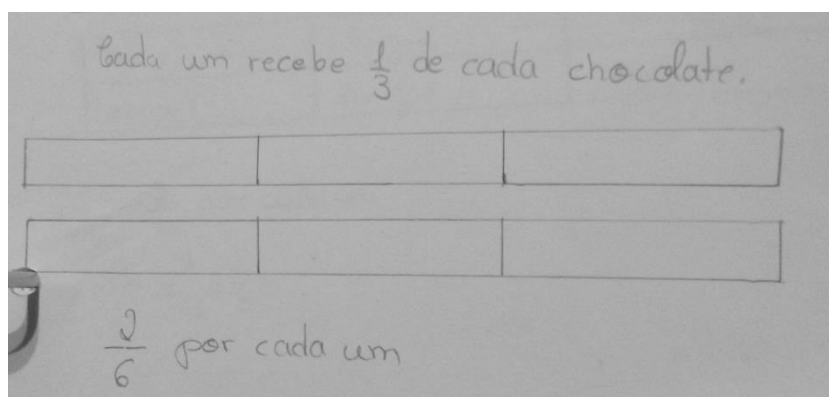 Cada um recebe 1/3 de cada chocolate.
2/6 por cada um